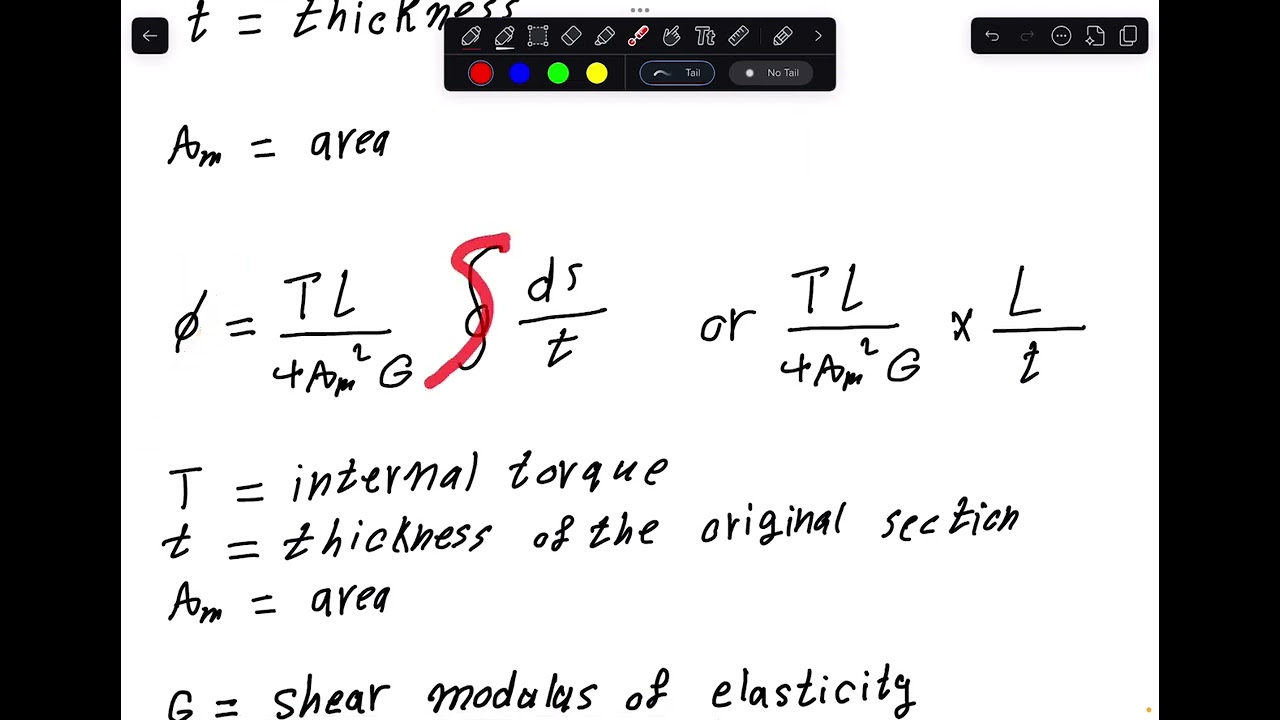 t = thickness
Tail No Tail
Am = area
ϕ = TL/4Am²G ∮ ds/t or TL/4Am²G × L/t
T = internal torque
t = thickness of the original section
Am = area
G = shear modulus of elasticity